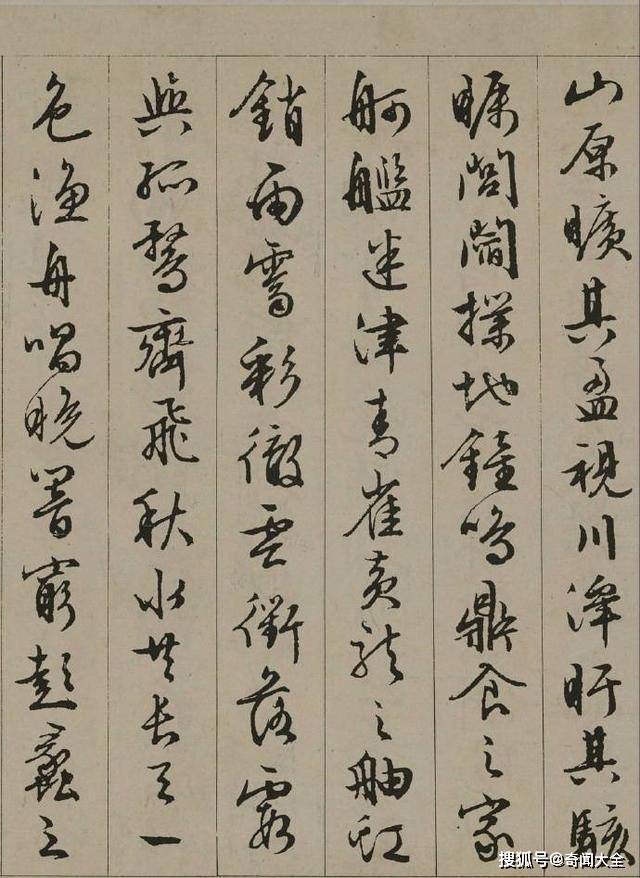 山原曠其盈視川澤盱其駭
矚閭閻撲地鐘鳴鼎食之家
舸艦迷津青雀黃龍之舳虹
銷雨霽彩徹雲衢落霞
與孤鶩齊飛秋水共長天一
色漁舟唱晚響窮彭蠡之
搜狐号@奇闻大全